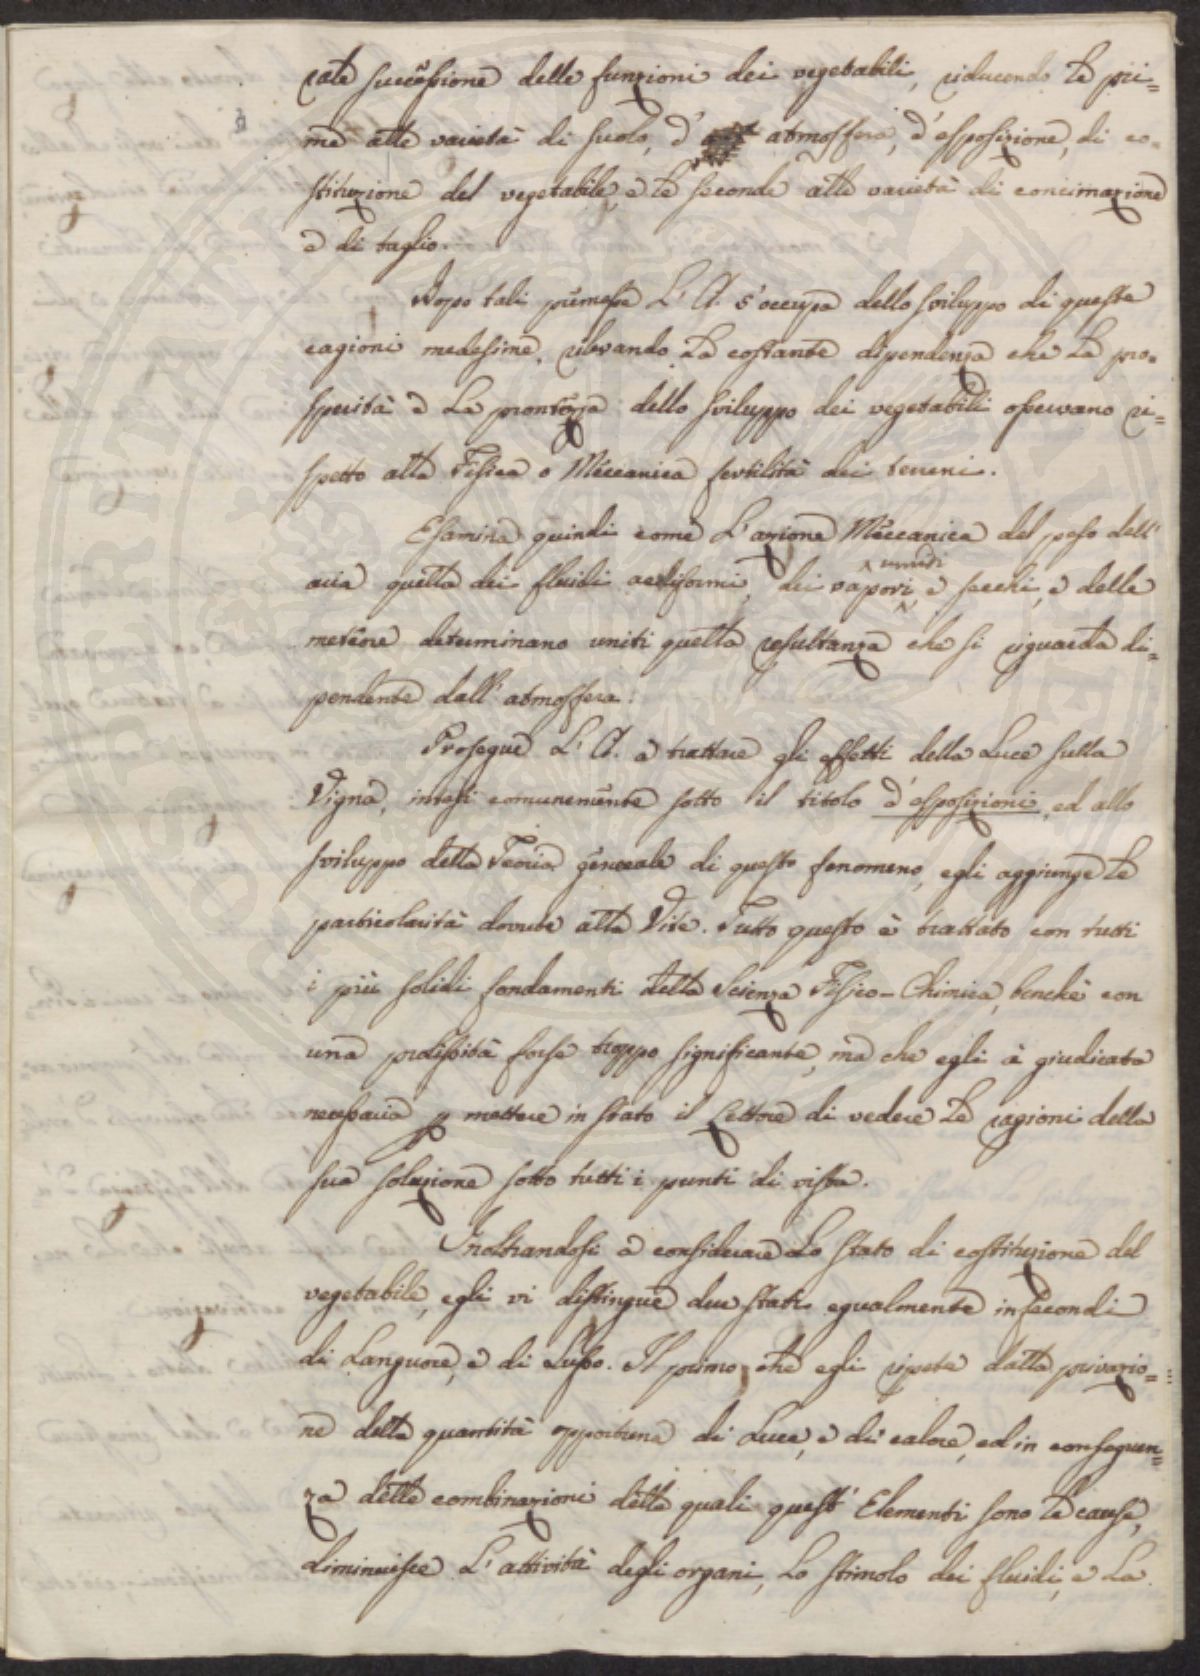 rate successione delle funzioni dei vegetabili, riducendo le pri=
me alle varietà di suolo, d' atmosfera, d'esposizione, di co=
stituzione del vegetabile, e le seconde alle varietà di concimazione
e di taglio.
Dopo tali premesse L'A. s'occupa dello sviluppo di queste
cagioni medesime, rilevando la costante dipendenza che la pro=
sperità e la prontezza dello sviluppo dei vegetabili osservano ri=
spetto alla Fisica o Meccanica fertilità dei terreni.
Esamina quindi come L'azione Meccanica del peso dell'
aria quella dei fluidi aeriformi, dei vapori umidi e secchi, e delle
meteore determinano uniti quella resultanza che si riguarda di=
pendente dall'atmosfera.
Prosegue L'A. a trattare gli effetti della Luce sulla
Vigna, intesi comunemente sotto il titolo d'esposizioni, ed allo
sviluppo della Teoria generale di questo fenomeno, egli aggiunge le
particolarità dovute alla Vite. Tutto questo è trattato con tutti
i più solidi fondamenti della Scienza Fisico-Chimica, benchè con
una prolissità forse troppo significante, ma che egli à giudicata
necessaria p mettere in stato il Lettore di vedere le ragioni della
sua soluzione sotto tutti i punti di vista.
Inoltrandosi a considerare Lo stato di costituzione del
vegetabile, egli vi distingue due stati egualmente infecondi
di Languore, e di Lusso. Il primo, che egli ripete dalla privazio=
ne della quantità opportuna di Luce, e di calore, ed in conseguen=
za delle combinazioni delle quali quest'Elementi sono le cause,
diminuisce L'attività degli organi, Lo stimolo dei fluidi, e La